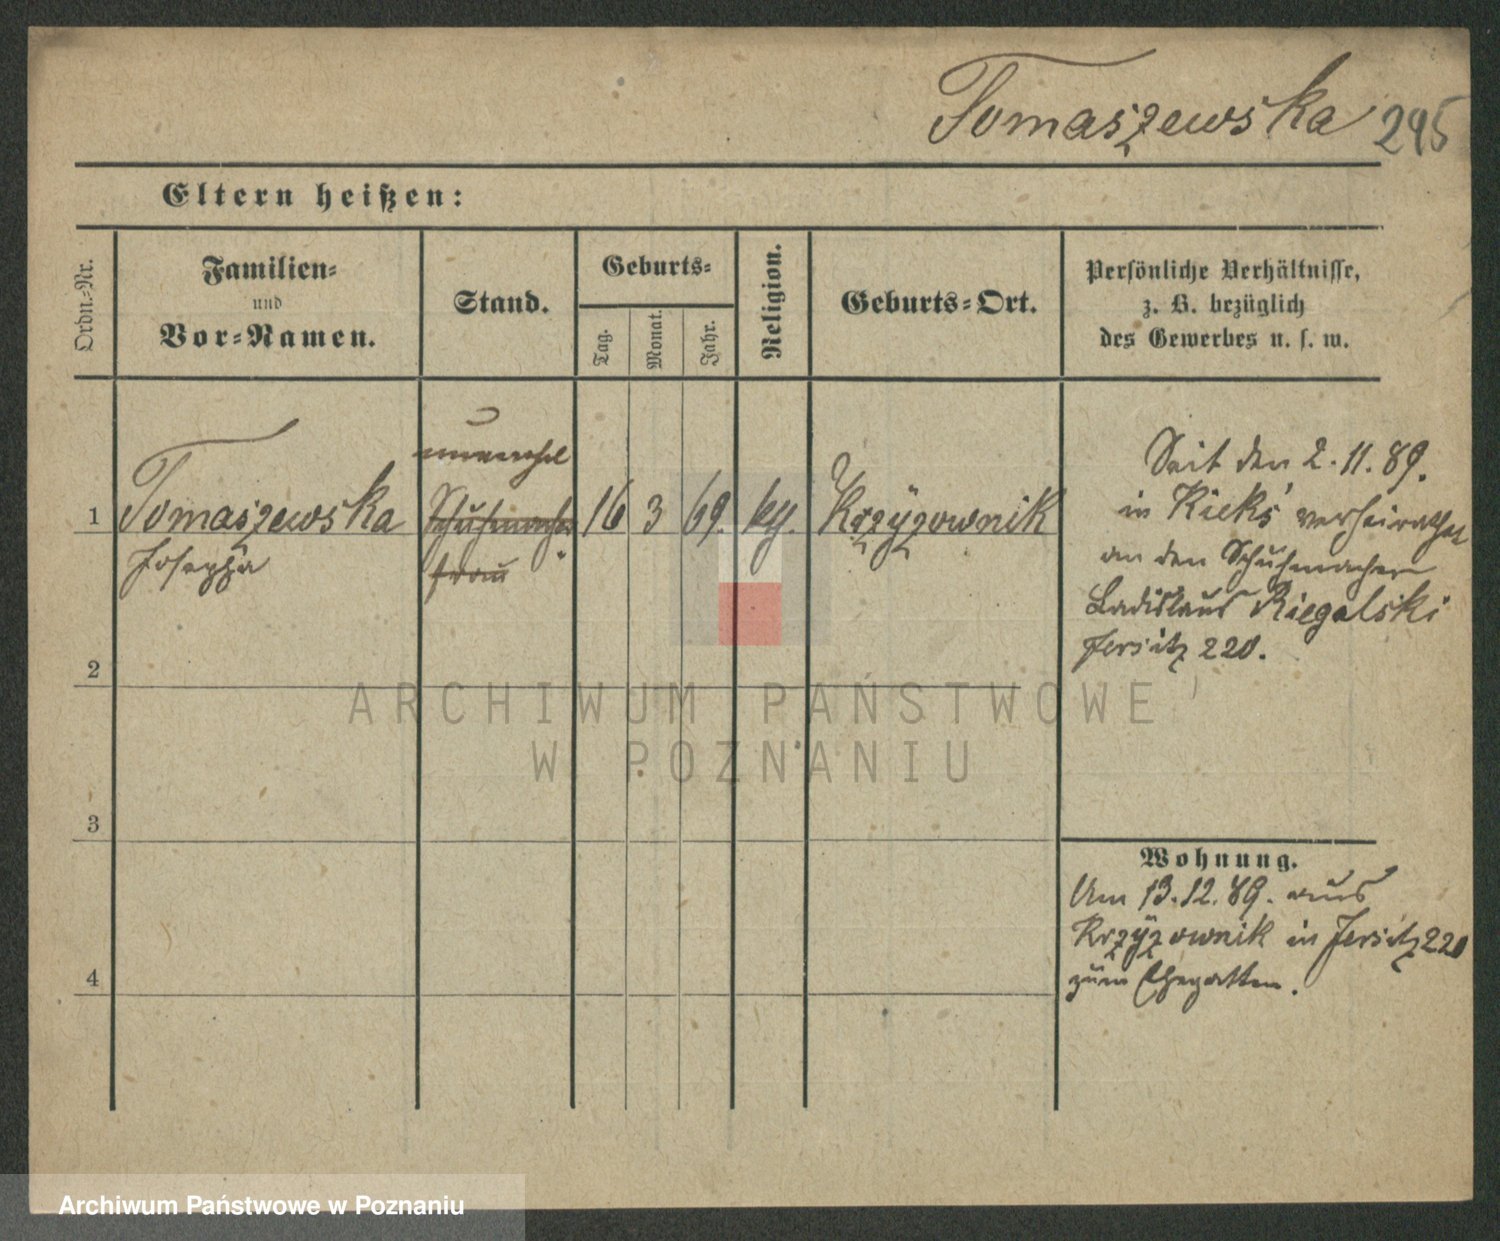 Tomaszewska 295
Eltern heißen:
Ordn.-Nr.
Familien-
und
Vor-Namen.
Stand.
Geburts-
Tag.
Monat.
Jahr.
Religion.
Geburts-Ort.
Persönliche Verhältnisse,
z. B. bezüglich
des Gewerbes u. s. w.
unverehel
1 Tomaszewska Schuhmacher 16 3 69. kth. Krzyzownik
Josepha frau
Seit den 2.11.89.
in Kieks verheirathet
an den Schuhmacher
Ladislaus Riegalski
Jersitz 220.
2
3
4
Wohnung.
Am 13.12.89. aus
Krzyzownik in Jersitz 220
zum Ehegatten.
ARCHIWUM PAŃSTWOWE
W POZNANIU
Archiwum Państwowe w Poznaniu